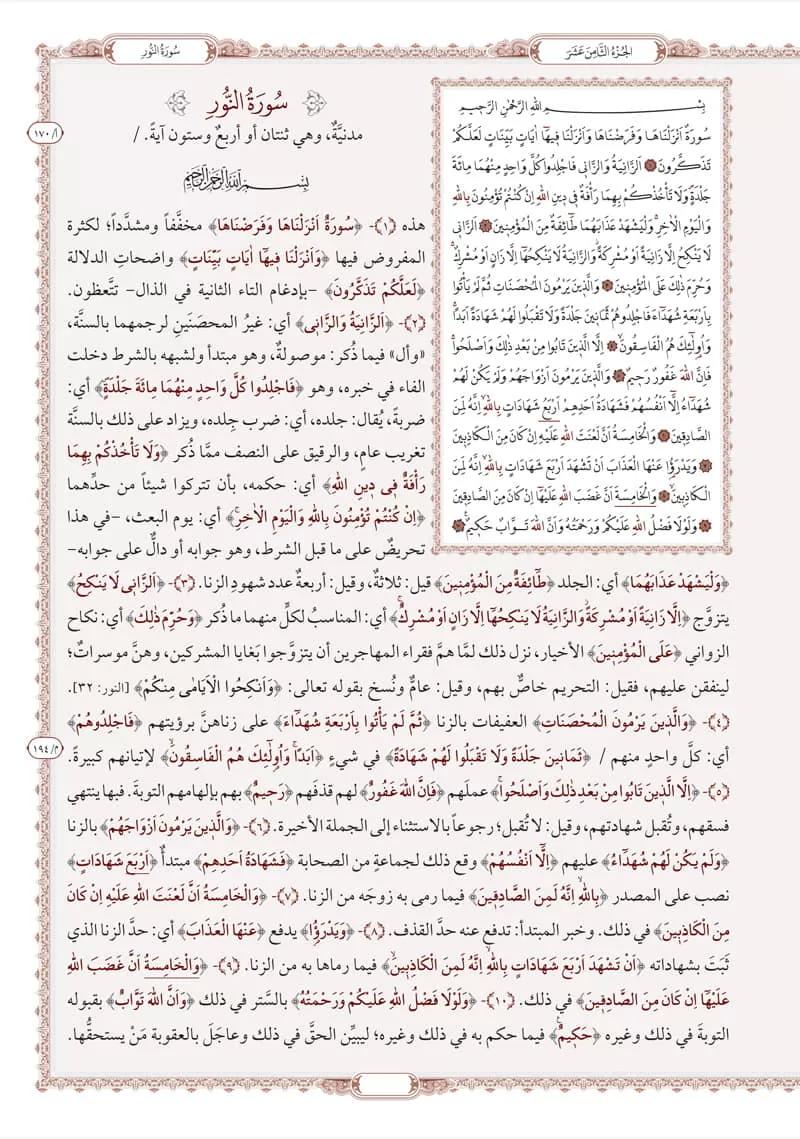 الجُزءُ الثَّامِنَ عَشَرَ
سُورَةُ النُّور
بِسْمِ اللهِ الرَّحْمٰنِ الرَّحِيمِ
سُورَةٌ اَنْزَلْنَاهَا وَفَرَضْنَاهَا وَاَنْزَلْنَا فِيهَٓا اٰيَاتٍ بَيِّنَاتٍ لَعَلَّكُمْ
تَذَكَّرُونَ اَلزَّانِيَةُ وَالزَّانِى فَاجْلِدُوا كُلَّ وَاحِدٍ مِنْهُمَا مِائَةَ
جَلْدَةٍ وَلَا تَأْخُذْكُمْ بِهِمَا رَأْفَةٌ فِى دِينِ اللهِ اِنْ كُنْتُمْ تُؤْمِنُونَ بِاللهِ
وَالْيَوْمِ الْاٰخِرِ وَلْيَشْهَدْ عَذَابَهُمَا طَٓائِفَةٌ مِنَ الْمُؤْمِنِينَ اَلزَّانِى
لَا يَنْكِحُ اِلَّا زَانِيَةً اَوْ مُشْرِكَةً وَالزَّانِيَةُ لَا يَنْكِحُهَٓا اِلَّا زَانٍ اَوْ مُشْرِكٌ
وَحُرِّمَ ذٰلِكَ عَلَى الْمُؤْمِنِينَ وَالَّذِينَ يَرْمُونَ الْمُحْصَنَاتِ ثُمَّ لَمْ يَأْتُوا
بِاَرْبَعَةِ شُهَدَٓاءَ فَاجْلِدُوهُمْ ثَمَانِينَ جَلْدَةً وَلَا تَقْبَلُوا لَهُمْ شَهَادَةً اَبَدًا
وَاُولٰٓئِكَ هُمُ الْفَاسِقُونَ اِلَّا الَّذِينَ تَابُوا مِنْ بَعْدِ ذٰلِكَ وَاَصْلَحُوا
فَاِنَّ اللهَ غَفُورٌ رَحِيمٌ وَالَّذِينَ يَرْمُونَ اَزْوَاجَهُمْ وَلَمْ يَكُنْ لَهُمْ
شُهَدَٓاءُ اِلَّٓا اَنْفُسُهُمْ فَشَهَادَةُ اَحَدِهِمْ اَرْبَعُ شَهَادَاتٍ بِاللهِ اِنَّهُ لَمِنَ
الصَّادِقِينَ وَالْخَامِسَةُ اَنَّ لَعْنَتَ اللهِ عَلَيْهِ اِنْ كَانَ مِنَ الْكَاذِبِينَ
وَيَدْرَؤُا عَنْهَا الْعَذَابَ اَنْ تَشْهَدَ اَرْبَعَ شَهَادَاتٍ بِاللهِ اِنَّهُ لَمِنَ
الْكَاذِبِينَ وَالْخَامِسَةُ اَنَّ غَضَبَ اللهِ عَلَيْهَٓا اِنْ كَانَ مِنَ الصَّادِقِينَ
وَلَوْلَا فَضْلُ اللهِ عَلَيْكُمْ وَرَحْمَتُهُ وَاَنَّ اللهَ تَوَّابٌ حَكِيمٌ
سُورَةُ النُّورِ
مدنيَّة، وهي ثنتان أو أربعٌ وستون آيةً. /
أ/١٧٠
بِسْمِ اللهِ الرَّحْمٰنِ الرَّحِيمِ
هذه (١)- ﴿سُورَةٌ اَنْزَلْنَاهَا وَفَرَضْنَاهَا﴾ مخفَّفاً ومشدَّداً؛ لكثرة
المفروض فيها ﴿وَاَنْزَلْنَا فِيهَٓا اٰيَاتٍ بَيِّنَاتٍ﴾ واضحاتِ الدلالة
﴿لَعَلَّكُمْ تَذَكَّرُونَ﴾ -بإدغام التاء الثانية في الذال- تتَّعظون.
(٢)- ﴿اَلزَّانِيَةُ وَالزَّانِى﴾ أي: غيرُ المحصَنَينِ لرجمهما بالسنَّة،
و«أل» فيما ذُكر: موصولةٌ، وهو مبتدأ ولشبهه بالشرط دخلت
الفاء في خبره، وهو ﴿فَاجْلِدُوا كُلَّ وَاحِدٍ مِنْهُمَا مِائَةَ جَلْدَةٍ﴾ أي:
ضربةً، يُقال: جلده، أي: ضرب جِلده، ويزاد على ذلك بالسنَّة
تغريب عامٍ، والرقيق على النصف ممَّا ذُكر ﴿وَلَا تَأْخُذْكُمْ بِهِمَا
رَأْفَةٌ فِى دِينِ اللهِ﴾ أي: حكمه، بأن تتركوا شيئاً من حدِّهما
﴿اِنْ كُنْتُمْ تُؤْمِنُونَ بِاللهِ وَالْيَوْمِ الْاٰخِرِ﴾ أي: يوم البعث، -في هذا
تحريضٌ على ما قبل الشرط، وهو جوابه أو دالٌّ على جوابه-
﴿وَلْيَشْهَدْ عَذَابَهُمَا﴾ أي: الجلد ﴿طَٓائِفَةٌ مِنَ الْمُؤْمِنِينَ﴾ قيل: ثلاثةٌ، وقيل: أربعةٌ عدد شهودِ الزنا. (٣)- ﴿اَلزَّانِى لَا يَنْكِحُ﴾
يتزوَّج ﴿اِلَّا زَانِيَةً اَوْ مُشْرِكَةً وَالزَّانِيَةُ لَا يَنْكِحُهَٓا اِلَّا زَانٍ اَوْ مُشْرِكٌ﴾ أي: المناسبُ لكلٍّ منهما ما ذُكر ﴿وَحُرِّمَ ذٰلِكَ﴾ أي: نكاح
الزواني ﴿عَلَى الْمُؤْمِنِينَ﴾ الأخيار، نزل ذلك لمَّا همَّ فقراء المهاجرين أن يتزوَّجوا بَغايا المشركين، وهنَّ موسراتٌ؛
لينفقن عليهم، فقيل: التحريم خاصٌّ بهم، وقيل: عامٌّ ونُسخ بقوله تعالى: ﴿وَاَنْكِحُوا الْاَيَامٰى مِنْكُمْ﴾ [النور: ٣٢].
(٤)- ﴿وَالَّذِينَ يَرْمُونَ الْمُحْصَنَاتِ﴾ العفيفات بالزنا ﴿ثُمَّ لَمْ يَأْتُوا بِاَرْبَعَةِ شُهَدَٓاءَ﴾ على زناهنَّ برؤيتهم ﴿فَاجْلِدُوهُمْ﴾
م/١٩٤
أي: كلَّ واحدٍ منهم / ﴿ثَمَانِينَ جَلْدَةً وَلَا تَقْبَلُوا لَهُمْ شَهَادَةً﴾ في شيءٍ ﴿اَبَدًا وَاُولٰٓئِكَ هُمُ الْفَاسِقُونَ﴾ لإتيانهم كبيرةً.
(٥)- ﴿اِلَّا الَّذِينَ تَابُوا مِنْ بَعْدِ ذٰلِكَ وَاَصْلَحُوا﴾ عملَهم ﴿فَاِنَّ اللهَ غَفُورٌ﴾ لهم قذفَهم ﴿رَحِيمٌ﴾ بهم بإلهامهم التوبةَ. فبها ينتهي
فسقهم، وتُقبل شهادتهم، وقيل: لا تُقبل؛ رجوعاً بالاستثناء إلى الجملة الأخيرة. (٦)- ﴿وَالَّذِينَ يَرْمُونَ اَزْوَاجَهُمْ﴾ بالزنا
﴿وَلَمْ يَكُنْ لَهُمْ شُهَدَٓاءُ﴾ عليهم ﴿اِلَّٓا اَنْفُسُهُمْ﴾ وقع ذلك لجماعةٍ من الصحابة ﴿فَشَهَادَةُ اَحَدِهِمْ﴾ مبتدأٌ ﴿اَرْبَعَ شَهَادَاتٍ﴾
نصب على المصدر ﴿بِاللهِ اِنَّهُ لَمِنَ الصَّادِقِينَ﴾ فيما رمى به زوجَه من الزنا. (٧)- ﴿وَالْخَامِسَةُ اَنَّ لَعْنَتَ اللهِ عَلَيْهِ اِنْ كَانَ
مِنَ الْكَاذِبِينَ﴾ في ذلك. وخبر المبتدأ: تدفع عنه حدَّ القذف. (٨)- ﴿وَيَدْرَؤُا﴾ يدفع ﴿عَنْهَا الْعَذَابَ﴾ أي: حدَّ الزنا الذي
ثَبَتَ بشهاداته ﴿اَنْ تَشْهَدَ اَرْبَعَ شَهَادَاتٍ بِاللهِ اِنَّهُ لَمِنَ الْكَاذِبِينَ﴾ فيما رماها به من الزنا. (٩)- ﴿وَالْخَامِسَةُ اَنَّ غَضَبَ اللهِ
عَلَيْهَٓا اِنْ كَانَ مِنَ الصَّادِقِينَ﴾ في ذلك. (١٠)- ﴿وَلَوْلَا فَضْلُ اللهِ عَلَيْكُمْ وَرَحْمَتُهُ﴾ بالسَّتر في ذلك ﴿وَاَنَّ اللهَ تَوَّابٌ﴾ بقبوله
التوبةَ في ذلك وغيره ﴿حَكِيمٌ﴾ فيما حكم به في ذلك وغيره؛ ليبيِّن الحقَّ في ذلك وعاجَلَ بالعقوبة مَنْ يستحقُّها.